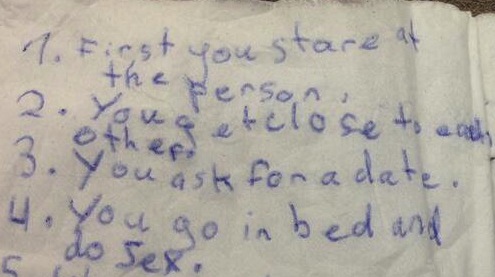 1. First you stare at
the person.
2. You get close to each
other.
3. You ask for a date.
4. You go in bed and
do sex.
5